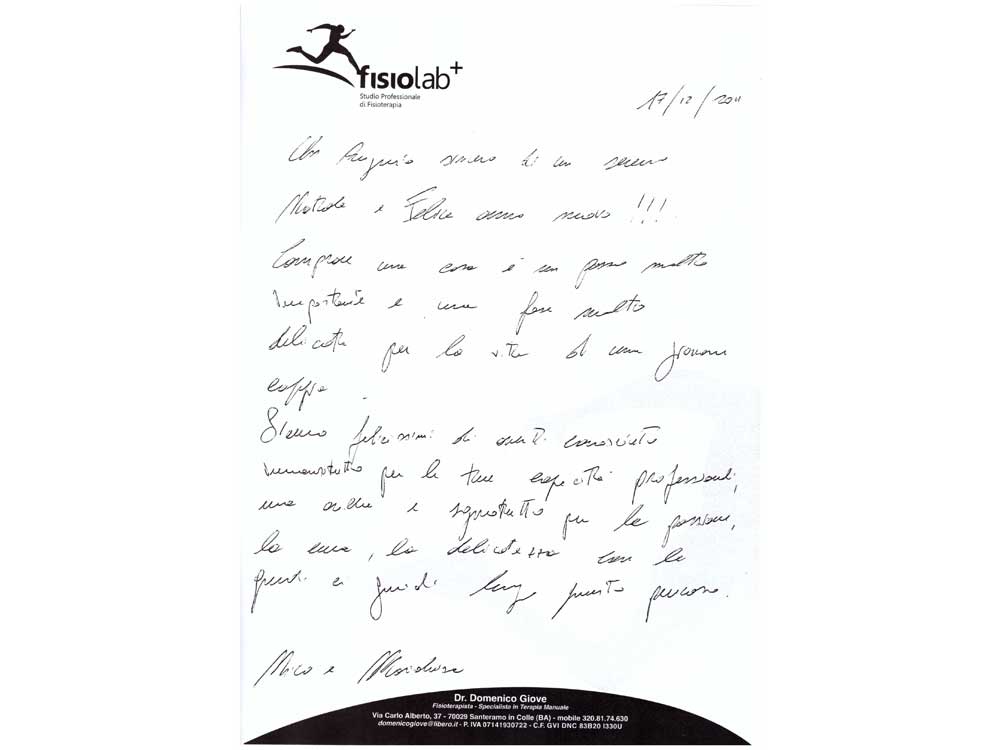 fisiolab+
Studio Professionale
di Fisioterapia
17/12/2011
Un Augurio sincero di un sereno
Natale e Felice anno nuovo!!!
Comprare una casa è un passo molto
importante e una fase molto
delicata per la vita di una giovane
coppia.
Siamo felicissimi di averti conosciuto
innanzitutto per le tue capacità professionali,
ma anche e soprattutto per la passione,
la cura, la delicatezza con le
quali ci guidi lungo questo percorso.
Mico e
Dr. Domenico Giove
Fisioterapista - Specialista in Terapia Manuale
Via Carlo Alberto, 37 - 70029 Santeramo in Colle (BA) - mobile 320.81.74.630
domenicogiove@libero.it - P. IVA 07141930722 - C.F. GVI DNC 83B20 I330U